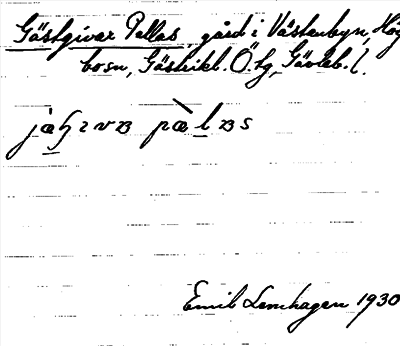 Gästgivar Pellas, gård i Västerbyn, Hög
bosn, Gästrikl. Ö. tg, Gävleb. l.
Emil Lenhagen 1930